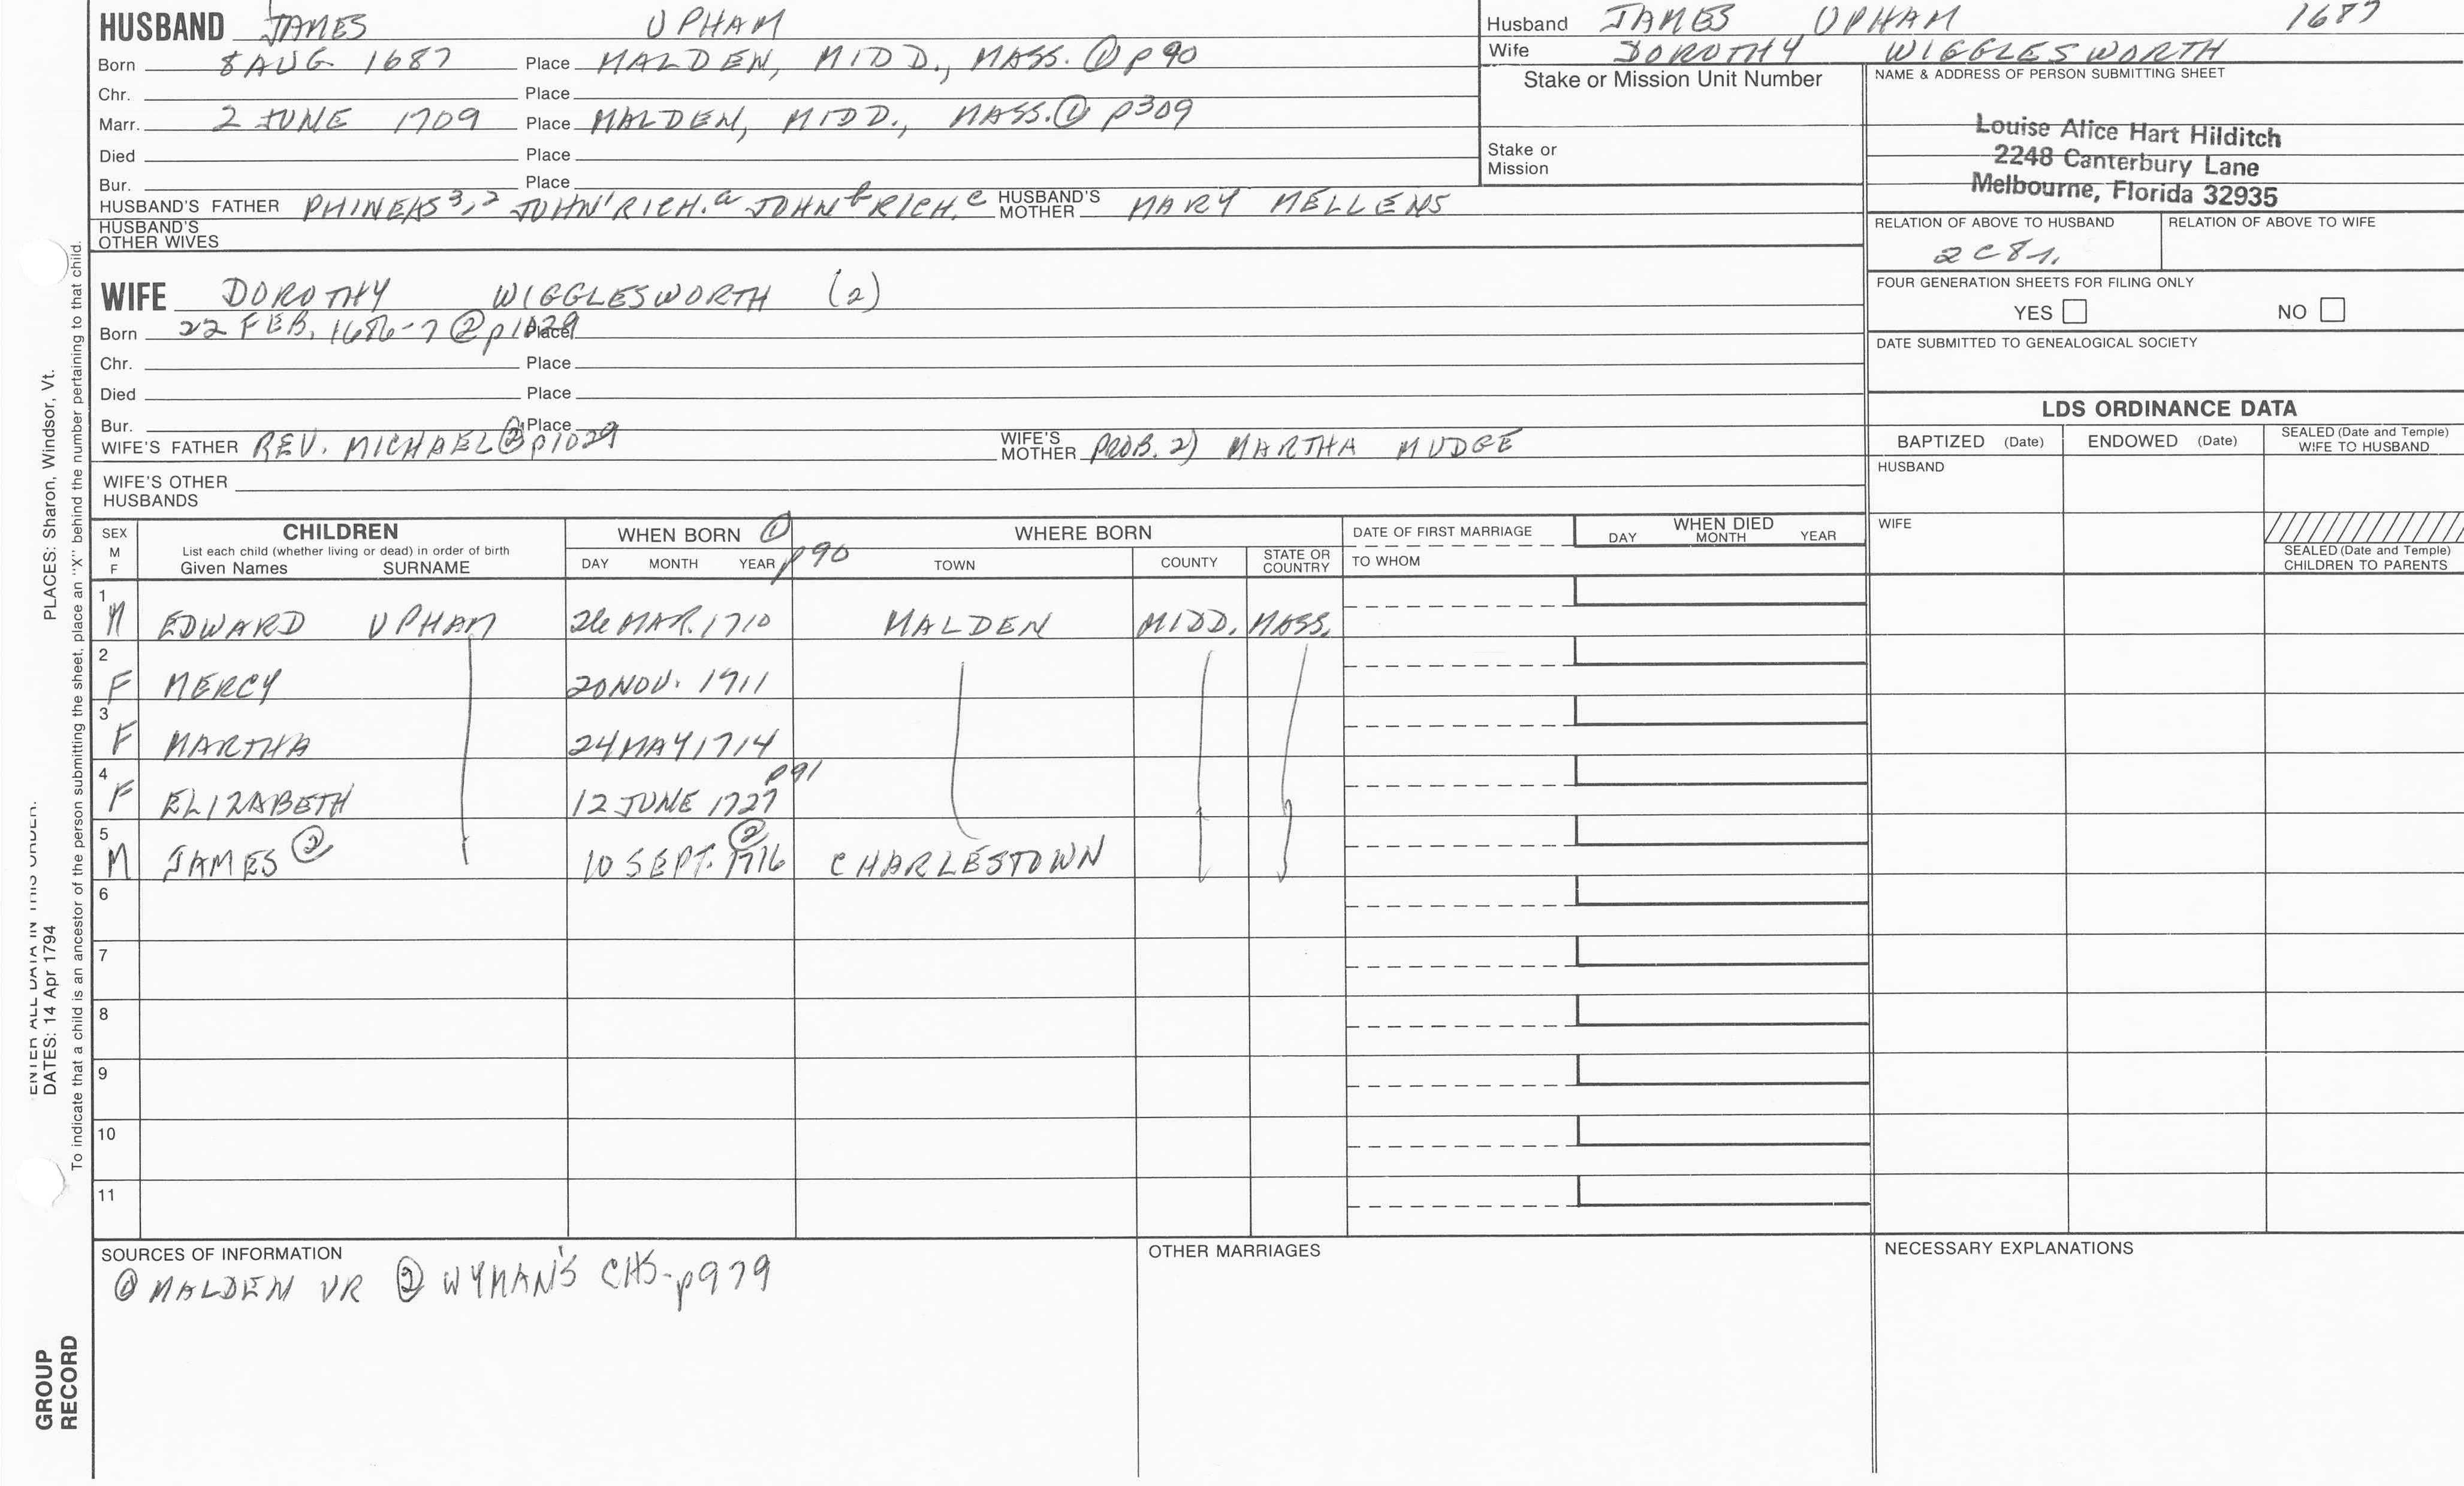 HUSBAND JAMES UPHAM
Born 8 AUG 1687 Place MALDEN, MIDD., MASS. ① p90
Chr. Place
Marr. 2 JUNE 1709 Place MALDEN, MIDD., MASS. ① p309
Died Place
Bur. Place
HUSBAND'S FATHER PHINEAS 3,2 JOHN 1 RICH. a JOHN b RICH. c HUSBAND'S MOTHER MARY MELLENS
HUSBAND'S OTHER WIVES
Husband JAMES UPHAM 1687
Wife DOROTHY WIGGLESWORTH
Stake or Mission Unit Number
Stake or Mission
NAME & ADDRESS OF PERSON SUBMITTING SHEET
Louise Alice Hart Hilditch
2248 Canterbury Lane
Melbourne, Florida 32935
RELATION OF ABOVE TO HUSBAND RELATION OF ABOVE TO WIFE
2C8r.
FOUR GENERATION SHEETS FOR FILING ONLY
YES NO
DATE SUBMITTED TO GENEALOGICAL SOCIETY
WIFE DOROTHY WIGGLESWORTH (2)
Born 22 FEB. 1686-7 ② p1029 Place
Chr. Place
Died Place
Bur. Place
WIFE'S FATHER REV. MICHAEL ② p1029 WIFE'S MOTHER PROB. 2) MARTHA MUDGE
WIFE'S OTHER HUSBANDS
LDS ORDINANCE DATA
BAPTIZED (Date) ENDOWED (Date) SEALED (Date and Temple) WIFE TO HUSBAND
HUSBAND
WIFE
SEALED (Date and Temple) CHILDREN TO PARENTS
SEX M F
CHILDREN
List each child (whether living or dead) in order of birth
Given Names SURNAME
WHEN BORN ① p90
DAY MONTH YEAR
WHERE BORN
TOWN COUNTY STATE OR COUNTRY
DATE OF FIRST MARRIAGE
TO WHOM
WHEN DIED
DAY MONTH YEAR
1 M EDWARD UPHAM 26 MAR. 1710 MALDEN MIDD. MASS.
2 F MERCY 20 NOV. 1711
3 F MARTHA 24 MAY 1714
4 F ELIZABETH 12 JUNE 1727 p91
5 M JAMES ② 10 SEPT. 1716 ② CHARLESTOWN
6
7
8
9
10
11
SOURCES OF INFORMATION
① MALDEN VR ② WYMAN'S CHS - p979
OTHER MARRIAGES
NECESSARY EXPLANATIONS
ENTER ALL DATA IN THIS ORDER:
DATES: 14 Apr 1794 PLACES: Sharon, Windsor, Vt.
To indicate that a child is an ancestor of the person submitting the sheet, place an "X" behind the number pertaining to that child.
GROUP
RECORD